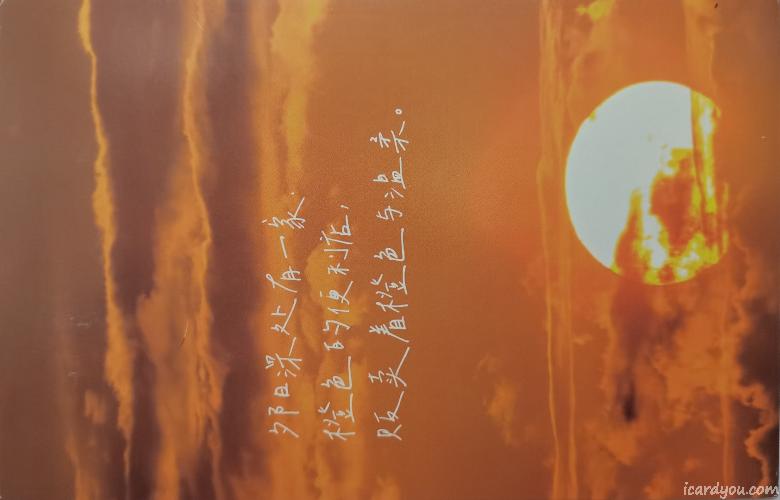 夕阳深处有一家
橙色的便利店，
贩卖着橙色与温柔。
icardyou.com